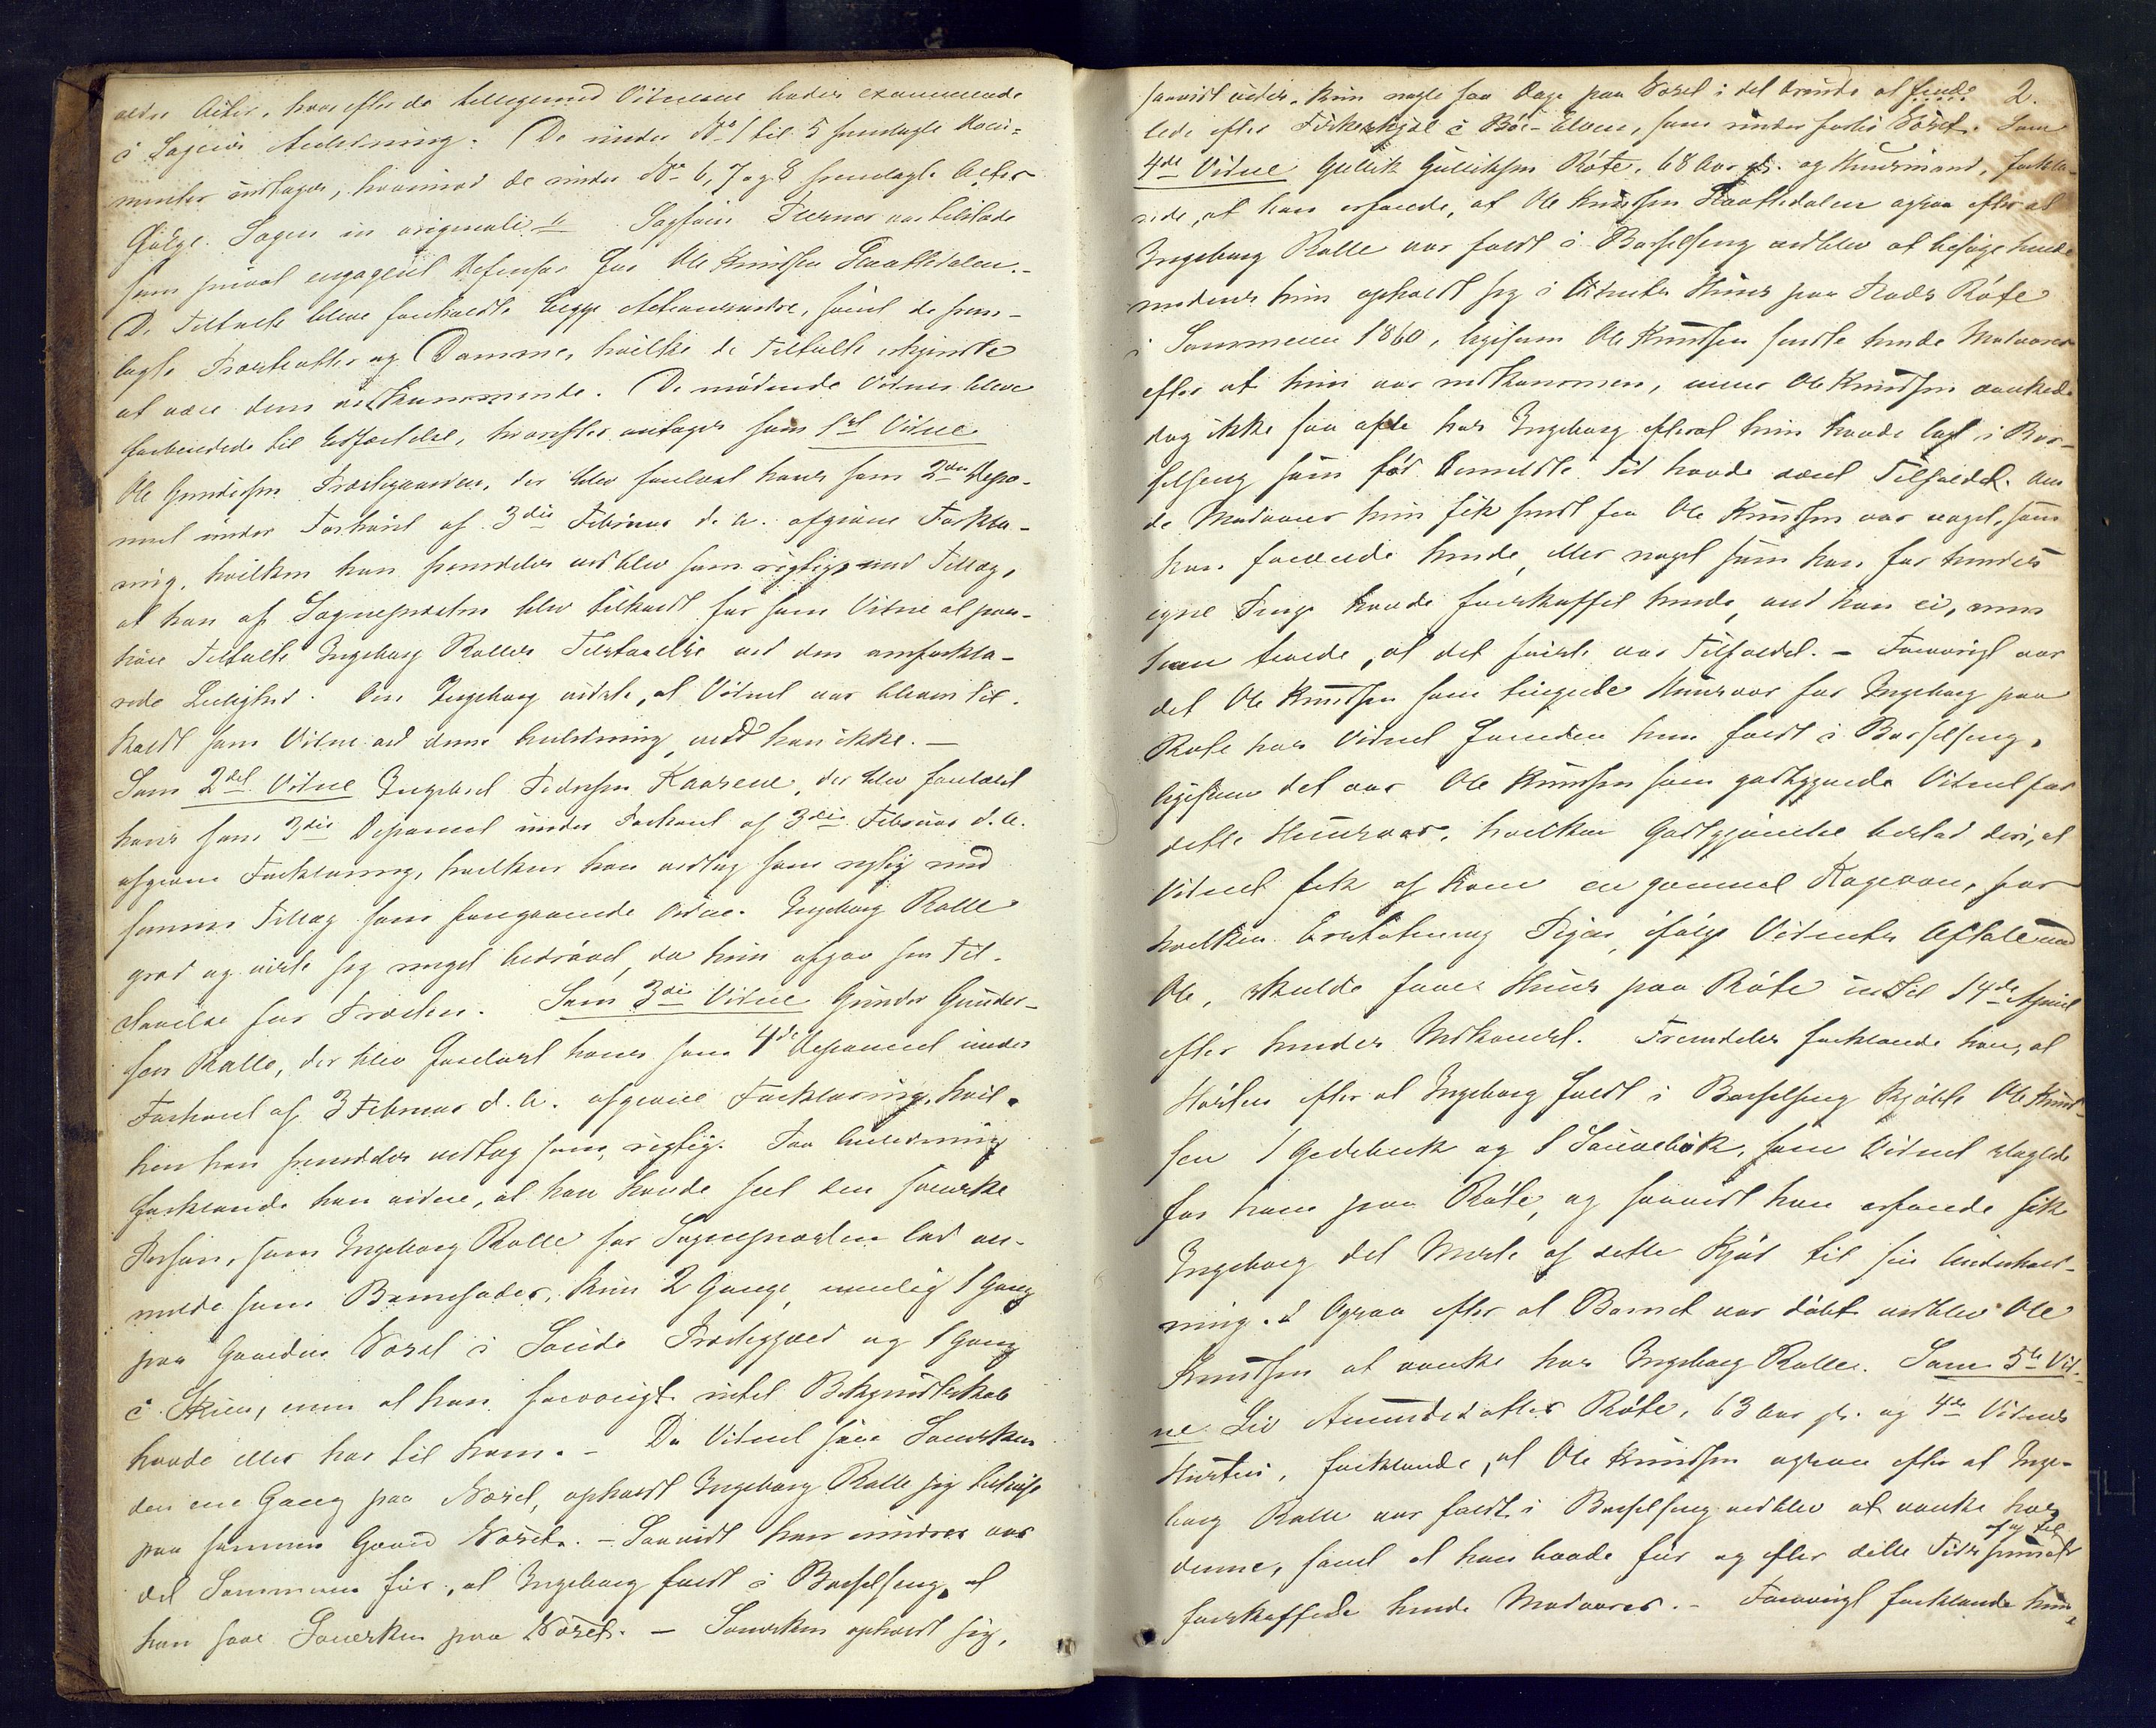 ældre Acter, hvorefter de tillegemed Vidnerne bades examinerede
i Sagens Anledning. De under No 1 til 5 fremlagte Docu-
menter indtages, hvorimod de under No 6, 7 og 8 fremlagte Acter
følge Sagen in originali. Sagfører Turner var tilstæde
som privat engageret Defensor for Ole Knudsen Haatvedalen.
De Tiltalte bleve foreholdte begge Actionsordre, samt de frem-
lagte Præsteatter og Domme, hvilke de Tiltalte erkjendte
at være dem vedkommende. De mødende Vidner bleve
forberedede til Edfæstelse, hvorefter antoges som 1ste Vidne
Ole Gundersen Præstegaarden, der blev forelæst hans som 2den Depo-
nent under Forhøret af 3die Februar d. A. afgivne Forkla-
ring, hvilken han fremdeles vedblev som rigtig med Tillæg,
at han af Sognepræsten blev tilkaldt for som Vidne at paa-
høre Tiltalte Ingeborg Rolles Tilstaaelse ved den omforkla-
rede Leilighed. Om Ingeborg vidste, at Vidnet var bleven til-
kaldt som Vidne ved denne Anledning ved han ikke. —
Som 2det Vidne Ingebret Pedersen Kaasene, der blev forelæst
hans som 3die Deponent under Forhøret af 3die Februar d. A.
afgivne Forklaring, hvilken han vedtog som rigtig med
samme Tillæg som foregaaende Vidne. Ingeborg Rolle
græd og viste sig meget bedrøvet, da hun afgav sin Til-
staaelse for Præsten. Som 3die Vidne Gunder Gunder-
sen Rolle, der blev forelæst hans som 4de Deponent under
Forhøret af 3 Februar d. A. afgivne Forklaring, hvil-
ken han fremdeles vedtog som rigtig. Paa Anledning
forklarede han videre, at han havde seet den svenske
Person, som Ingeborg Rolle for Sognepræsten lod an-
melde som Barnefader, kun 2 Gange, nemlig 1 Gang
paa Gaarden Noret i Sande Præstegjæld og 1 Gang
i Skien, men at han forøvrigt intet Bekjendtskab
havde eller har til ham. — Da Vidnet saae Svensken
den ene Gang paa Noret, opholdt Ingeborg Rolle sig
paa samme Gaard Noret. — Saavidt han mindes var
det Sommeren før, at Ingeborg faldt i Barselseng, at
han saae Svensken paa Noret. — Svensken opholdt sig,
saavidt vides, kun nogle faa Dage paa Noret i det Ærinde at finde 2.
lede efter Fiskeskjæl i Bøe-Elven, som rinder forbi Noret. Som
4de Vidne Gullik Gulliksen Røte, 68 Aar gl. og Huusmand, forkla-
rede, at han erfarede, at Ole Knudsen Haatvedalen ogsaa efter at
Ingeborg Rolle var faldt i Barselseng vedblev at besøge hende
medens hun opholdt sig i Vidnets Huus paa Plads Røte
i Sommeren 1860, ligesom Ole Knudsen sendte hende Madvarer
efter at hun var nedkommen, men Ole Knudsen vankede
dog ikke saa ofte hos Ingeborg efterat hun havde lagt i Bar-
selseng som før bemeldte Tid havde været Tilfældet. Om
de Madvarer hun fik sendt fra Ole Knudsen var noget, som
han forærede hende, eller noget som han for hendes
egne Penge havde forskaffet hende, ved han ei, men
han troede, at det første var Tilfældet. — Forøvrigt var
det Ole Knudsen som tingede Huusvær for Ingeborg paa
Røte hos Vidnet førinden hun faldt i Barselseng,
ligesom det var Ole Knudsen som godtgjorde Vidnet for
dette Huusvær, hvilken Godtgjørelse bestod deri, at
Vidnet fik af ham en gammel Kogeovn, for
hvilken Erstatning Pigen, ifølge Vidnets Aftale med
Ole, skulde faae Huus paa Røte indtil 14de April
efter hendes Nedkomst. Fremdeles forklarede han, at
Høsten efter at Ingeborg faldt i Barselseng kjøbte Ole Knud-
sen 1 Gedebuk og 1 Sauebuk, som Vidnet slagtede
for ham paa Røte, og saavidt han erfarede fik
Ingeborg det Meste af dette Kjød til sin Underhold-
ning. Ogsaa efter at Barnet var døbt vedblev Ole
Knudsen at vanke hos Ingeborg Rolle. Som 5te Vid-
ne Liv Amundsdatter Røte, 63 Aar gl. og 4de Vidnes
Hustru, forklarede, at Ole Knudsen ogsaa efter at Inge-
borg Rolle var faldt i Barselseng vedblev at vanke hos
denne, samt at han baade før og efter dette Tidspunct
af og til
forskaffede hende Madvarer. — Forøvrigt forklarede hun